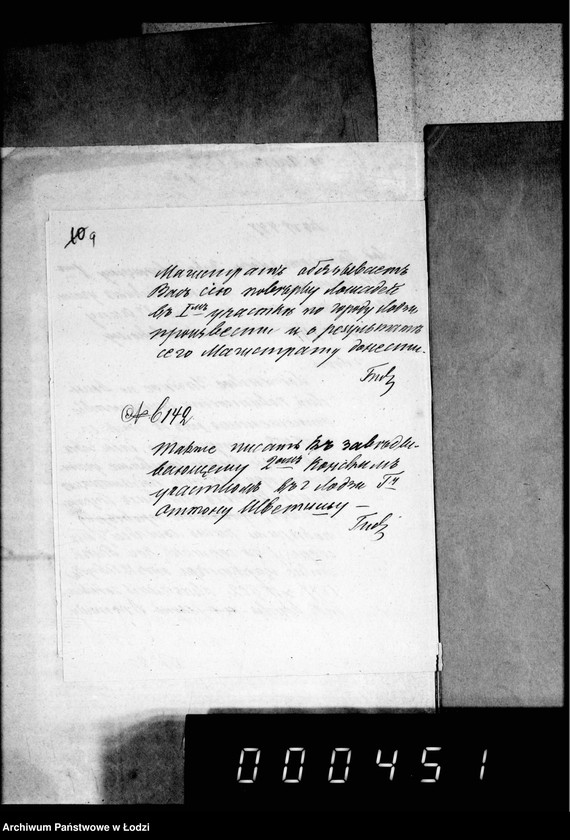 10 9
Магистратъ обязываетъ
Васъ сію повѣрку лошадей
въ Iмъ участкѣ по городу Лодзи
произвести и о результатѣ
сего Магистрату донести.
№ 6142
Также писать къ завѣды-
вающему 2омъ Конскимъ
участкомъ въ г Лодзи Гн
Антону
000451
Archiwum Państwowe w Łodzi